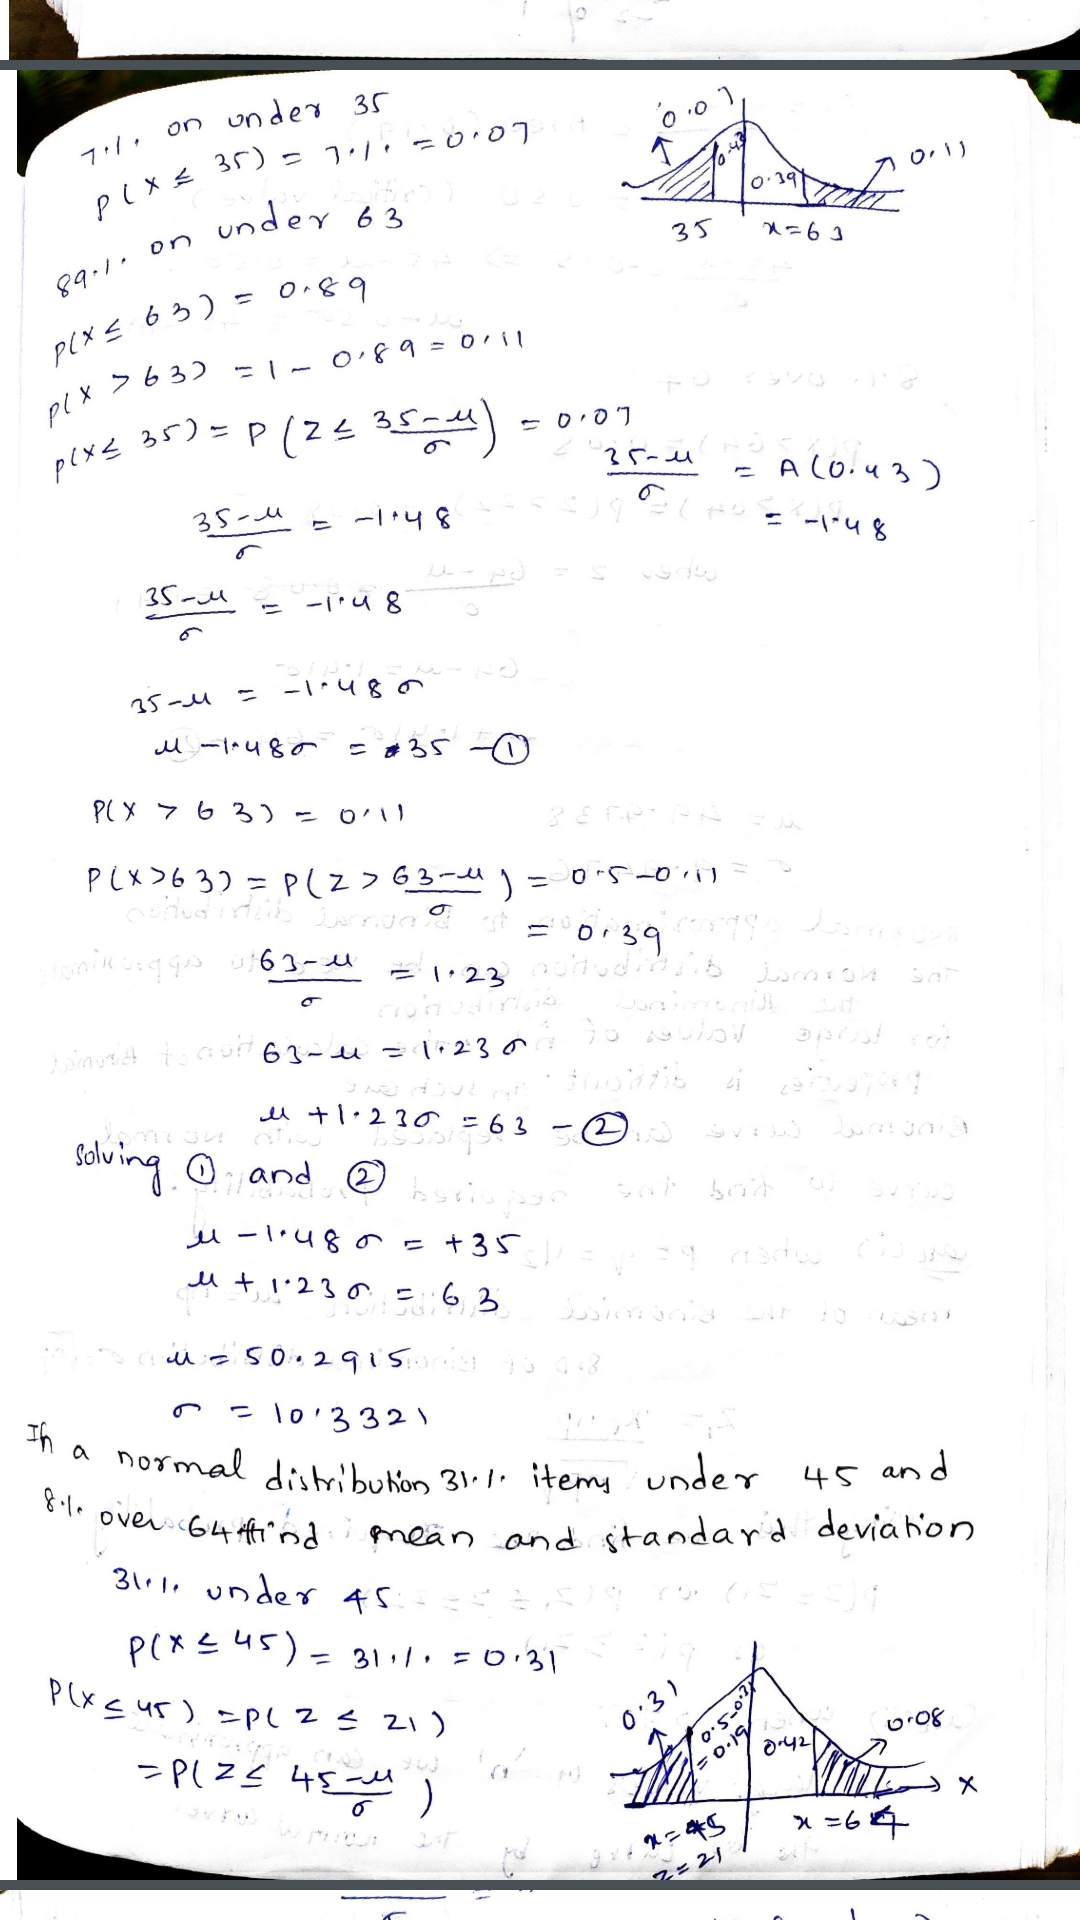 7.1. on under 35
P(X ≤ 35) = 7.1. = 0.07
0.07
0.43
0.39
0.11
35 x=63
89.1. on under 63
P(X ≤ 63) = 0.89
P(X > 63) = 1 - 0.89 = 0.11
P(X ≤ 35) = P(Z ≤ (35-μ)/σ) = 0.07
(35-μ)/σ = A(0.43)
= -1.48
(35-μ)/σ = -1.48
(35-μ)/σ = -1.48
35-μ = -1.48σ
μ -1.48σ = 35 -①
P(X > 63) = 0.11
P(X>63) = P(Z > (63-μ)/σ) = 0.5-0.11
= 0.39
(63-μ)/σ = 1.23
63-μ = 1.23σ
μ +1.23σ = 63 -②
Solving ① and ②
μ -1.48σ = +35
μ + 1.23σ = 63
μ = 50.2915
σ = 10.3321
In a normal distribution 31.1. items under 45 and
8.1. over 64 find mean and standard deviation
31.1. under 45
P(X ≤ 45) = 31.1. = 0.31
P(X ≤ 45) = P(Z ≤ z1)
= P(Z ≤ (45-μ)/σ)
0.31
0.5-0.31
= 0.19
0.42
0.08
x
x=45 x=64
z=z1